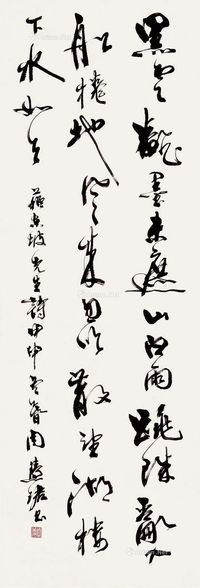 黑雲翻墨未遮山白雨跳珠亂入
船捲地風來忽吹散望湖樓
下水如天
蘇東坡先生詩甲申周慧珺书